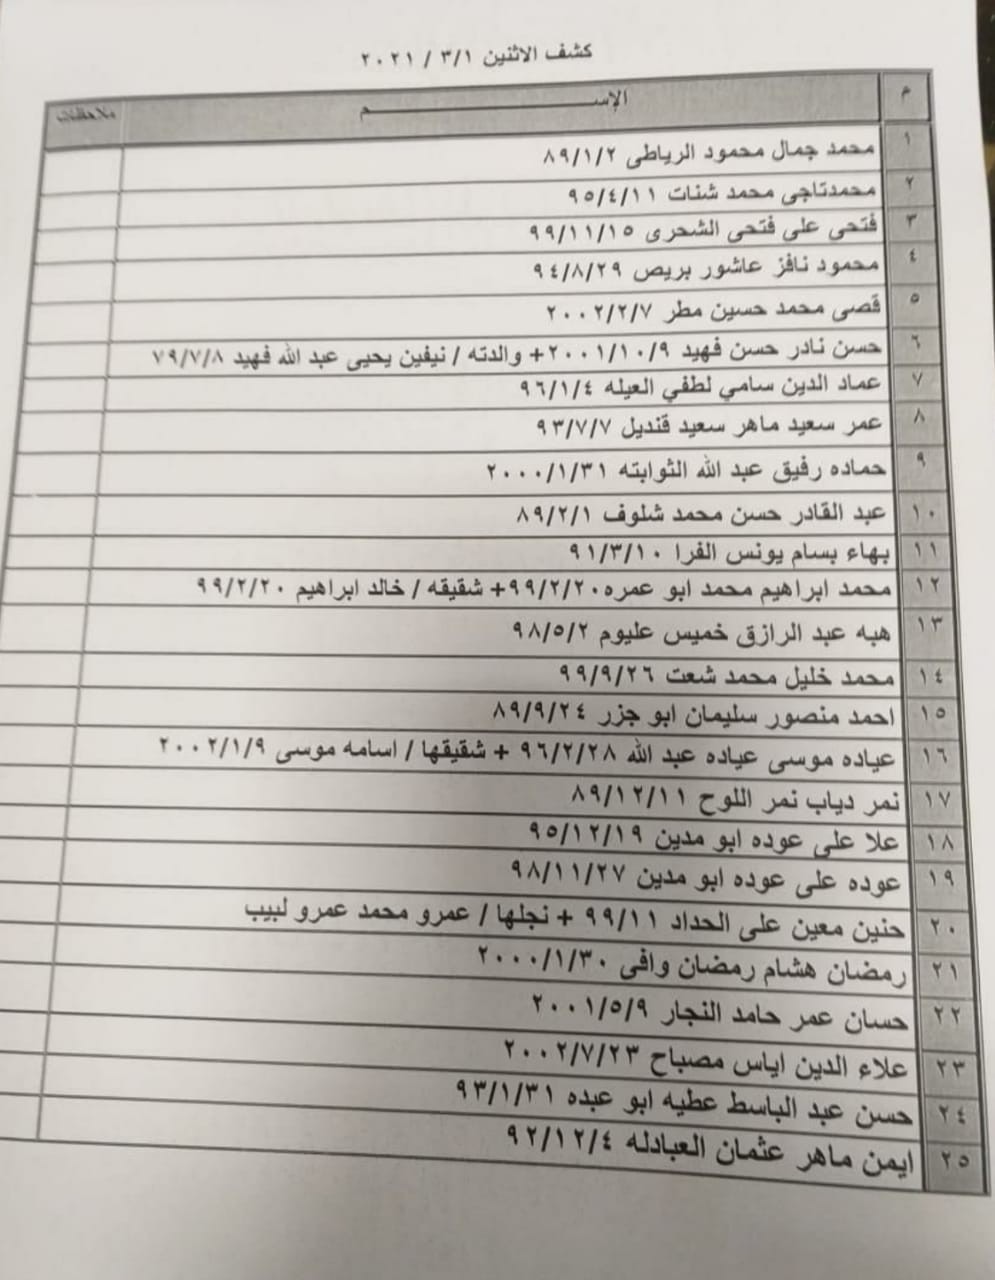 كشف الاثنين ٣/١ / ٢٠٢١
م الإســـــــــم ملاحظات
١ محمد جمال محمود الرياطى ٨٩/١/٢
٢ محمدتاجى محمد شنات ٩٥/٤/١١
٣ فتحى على فتحى الشحرى ٩٩/١١/١٥
٤ محمود نافز عاشور بريص ٩٤/٨/٢٩
٥ قصى محمد حسين مطر ٢٠٠٢/٢/٧
٦ حسن نادر حسن فهيد ٢٠٠١/١٠/٩+ والدته / نيفين يحيى عبد الله فهيد ٧٩/٧/٨
٧ عماد الدين سامي لطفي العيله ٩٦/١/٤
٨ عمر سعيد ماهر سعيد قنديل ٩٣/٧/٧
٩ حماده رفيق عبد الله الثوابته ٢٠٠٠/١/٣١
١٠ عبد القادر حسن محمد شلوف ٨٩/٢/١
١١ بهاء بسام يونس الفرا ٩١/٣/١٠
١٢ محمد ابراهيم محمد ابو عمره٩٩/٢/٢٠+ شقيقه / خالد ابراهيم ٩٩/٢/٢٠
١٣ هبه عبد الرازق خميس عليوم ٩٨/٥/٢
١٤ محمد خليل محمد شعت ٩٩/٩/٢٦
١٥ احمد منصور سليمان ابو جزر ٨٩/٩/٢٤
١٦ عياده موسى عياده عبد الله ٩٦/٢/٢٨ + شقيقها / اسامه موسى ٢٠٠٢/١/٩
١٧ نمر دياب نمر اللوح ٨٩/١٢/١١
١٨ علا على عوده ابو مدين ٩٥/١٢/١٩
١٩ عوده على عوده ابو مدين ٩٨/١١/٢٧
٢٠ حنين معين على الحداد ٩٩/١١ + نجلها / عمرو محمد عمرو لبيب
٢١ رمضان هشام رمضان وافى ٢٠٠٠/١/٣٠
٢٢ حسان عمر حامد النجار ٢٠٠١/٥/٩
٢٣ علاء الدين اياس مصباح ٢٠٠٢/٧/٢٣
٢٤ حسن عبد الباسط عطيه ابو عبده ٩٣/١/٣١
٢٥ ايمن ماهر عثمان العبادله ٩٢/١٢/٤